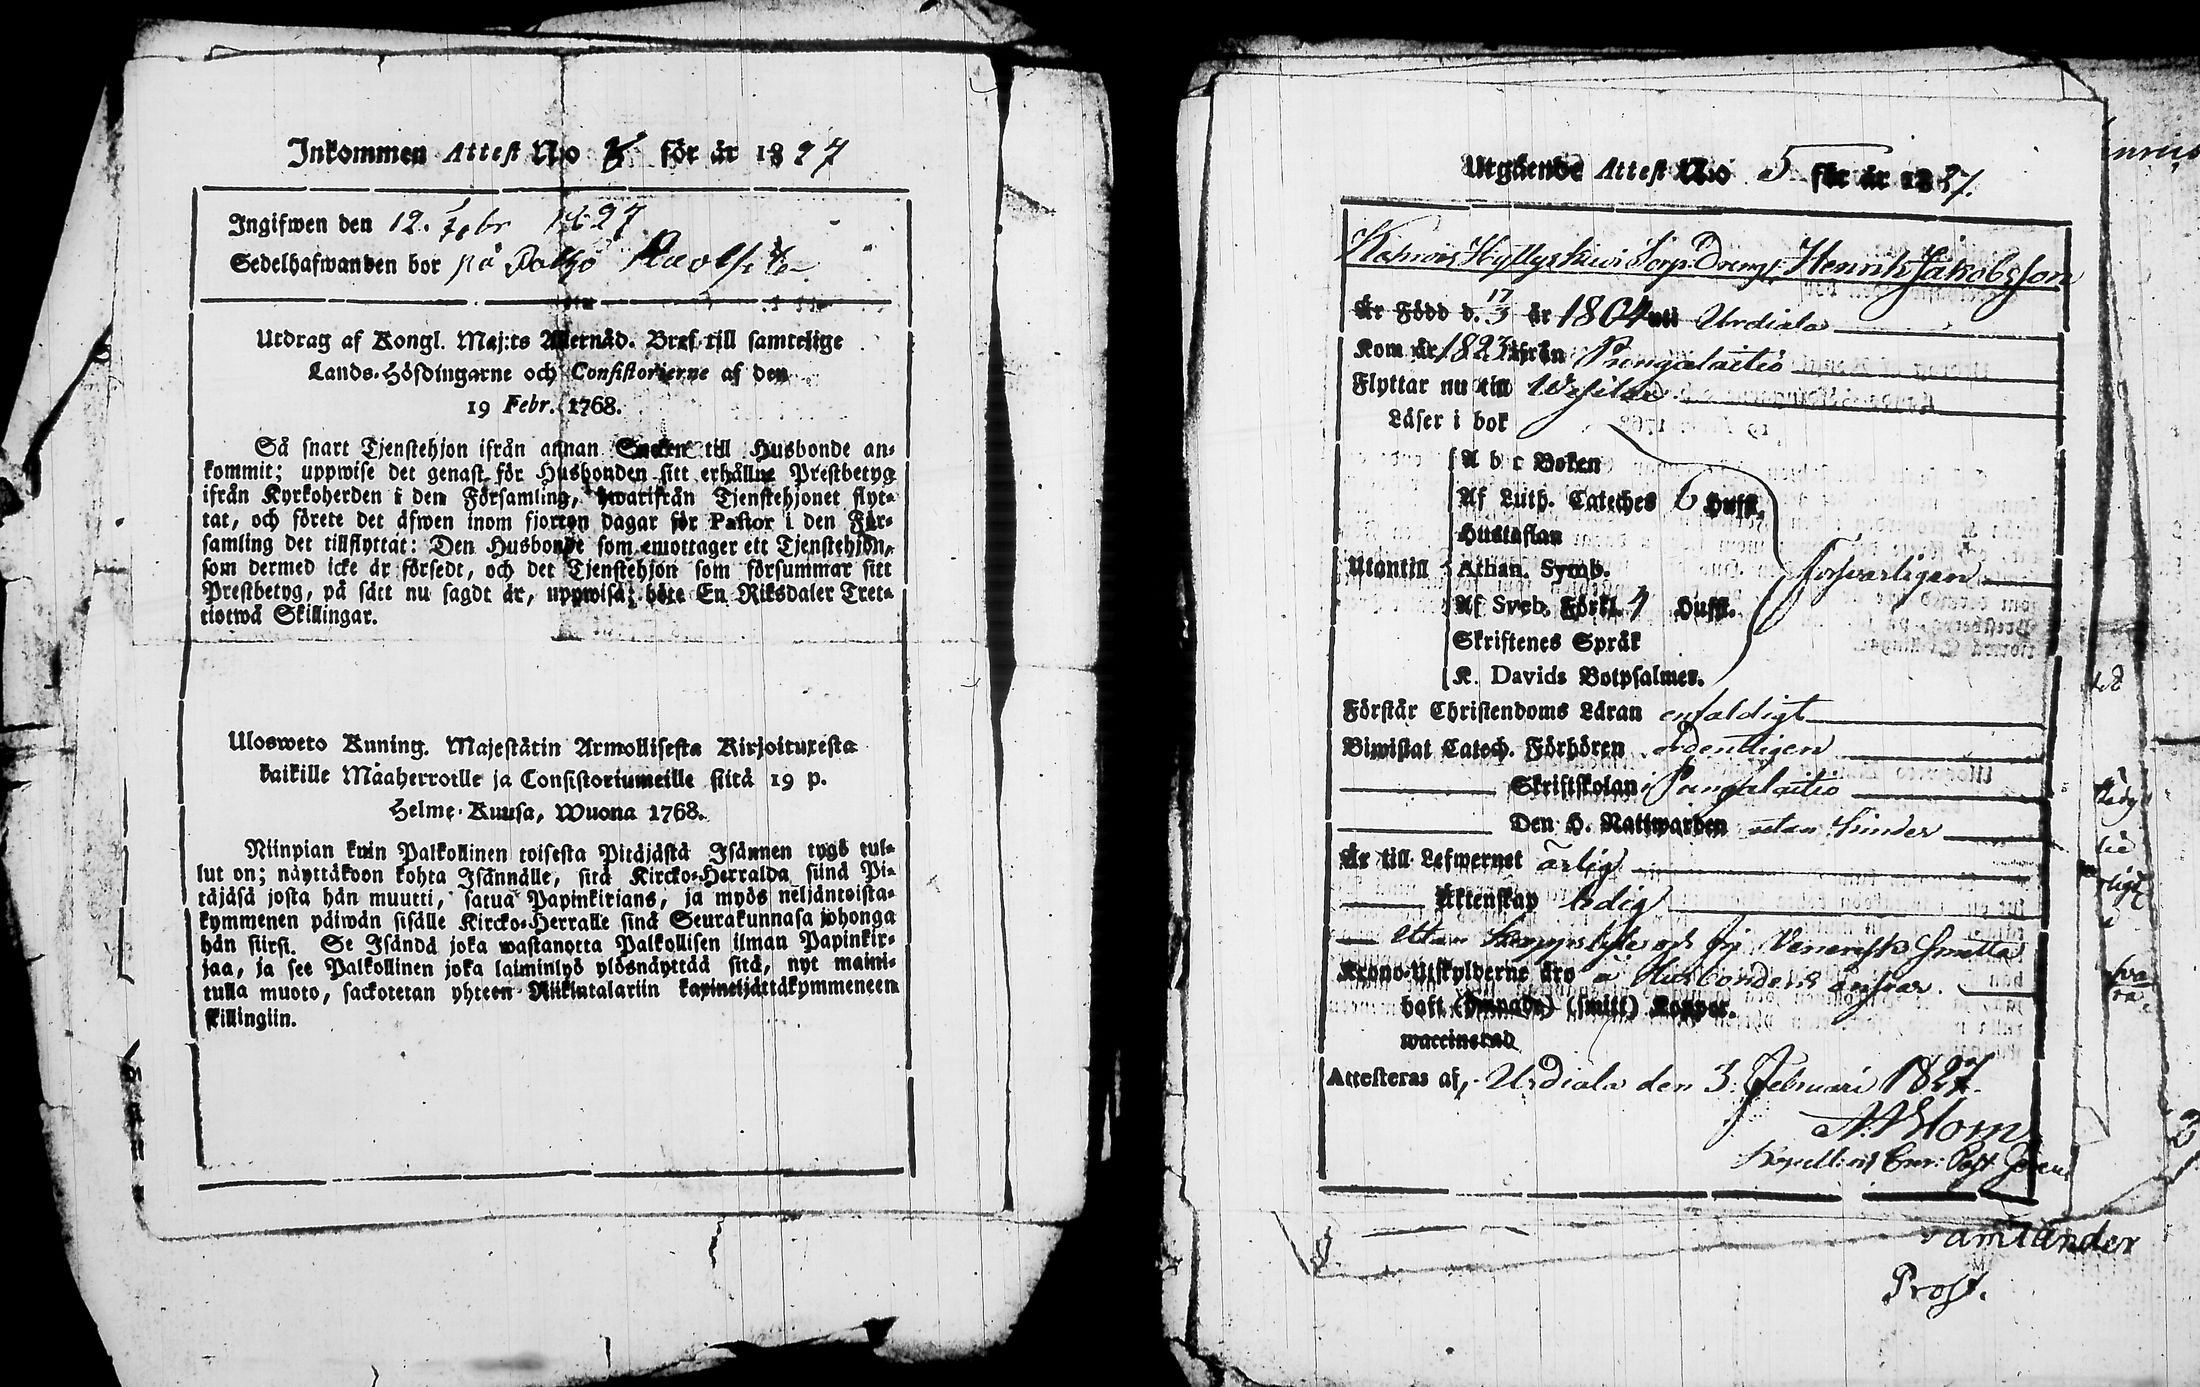 Inkommen Attest No 8 för år 1827
Ingifwen den 12. Febr 1827
Sedelhafwanden bor på
Utdrag af Kongl. Maj:ts Allernåd. Bref till samtelige
Lands-Höfdingarne och Consistorierne af den
19 Febr. 1768.
Så snart Tjenstehjon ifrån annan Socken till Husbonde an-
kommit; uppwise det genast för Husbonden sitt erhållne Prestbetyg
ifrån Kyrkoherden i den Församling, hwarifrån Tjenstehjonet flyt-
tat, och förete det äfwen inom fjorton dagar för Pastor i den För-
samling det tillflyttat: Den Husbonde som emottager ett Tjenstehjon,
som dermed icke är försedt, och det Tjenstehjon som försummar sitt
Prestbetyg, på sätt nu sagdt är, uppwisa; böte En Riksdaler Tret-
tiotwå Skillingar.
Ulosweto Kuning. Majestätin Armollisesta Kirjoituxesta
kaikille Maaherroille ja Consistoriumeille siitä 19 p.
Helme-Kuusa, Wuona 1768.
Niinpian kuin Palkollinen toisesta Pitäjästä Isännen tygö tul-
lut on; näyttäkoon kohta Isännälle, sitä Kircko-Herralda siinä Pi-
täjäsä josta hän muutti, satua Papinkirians, ja myös neljäntoista-
kymmenen päiwän sisälle Kircko-Herralle sinä Seurakunnasa johonga
hän siirsi. Se Isändä joka wastanotta Palkollisen ilman Papinkir-
jaa, ja see Palkollinen joka laiminlyö ylösnäyttää sitä, nyt maini-
tulla muoto, sackotetan yhteen Riikintalariin kaxineljättäkymmeneen
skillingiin.
Utgående Attest No 5 för år 1827.
Hyllyskiwi Torp. Dreng. Henrik Jakobsson
Är Född d. 17/3 år 1804 uti Urdiala
Kom år 1823 ifrån Pungalaitio
Flyttar nu till Wesilax
Läser i bok
A b c Boken
Af Luth. Cateches 6 Hufst.
Hustaflan
Utantill Athan. Symb. försvarligen
Af Sveb. Förkl. 4 Hufst.
Skriftenes Språk
K. Davids Botpsalmer.
Förstår Christendoms Läran enfaldigt
Biwistat Catech. Förhören ordentligen
Skriftskolan i Pungalaitio
Den H. Nattwarden utan hinder
Är till Lefwernet ärlig
Äktenskap ledig
utan och fri Venerisk Smitta
Krono-Utskylderne äro å Husbondens ansvar.
haft (ympade) (smitt) Koppor.
waccinerad
Attesteras af, Urdiala den 3 Februari 1827.
Prost.